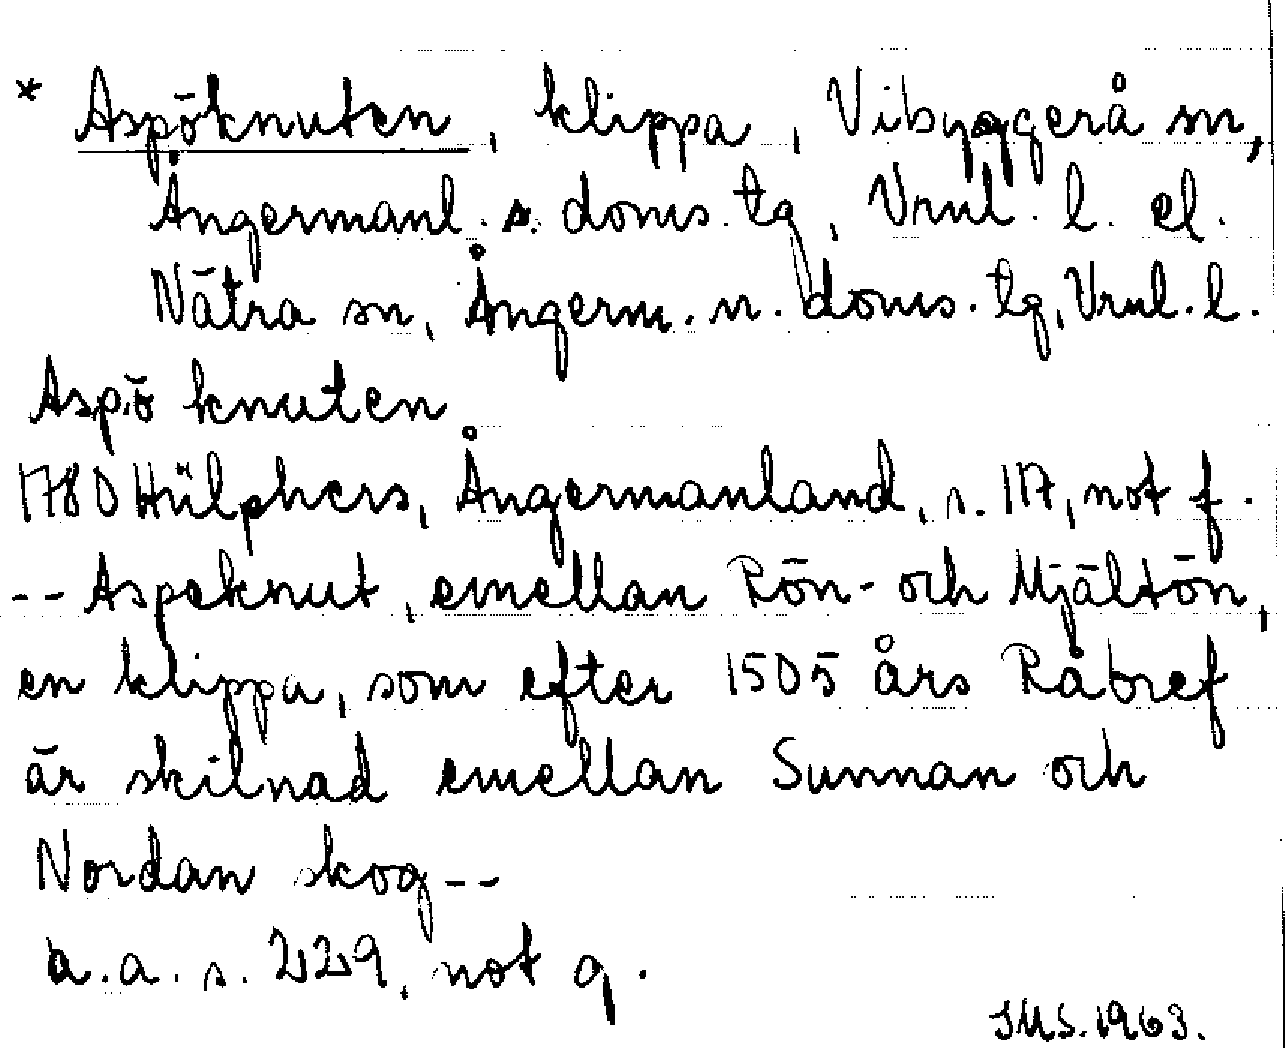 * Aspöknuten, klippa, Vibyggerå sn,
Ångermanl. s. doms. tg, Vrnl. l. el.
Nätra sn, Ångerm. n. doms. tg, Vrnl. l.
Aspö knuten
1780 Hülphers, Ångermanland, s. 117, not f.
-- Aspeknut, emellan Rön- och Mjältön,
en klippa, som efter 1505 års Råbref
är skilnad emellan Sunnan och
Nordan skog --
a.a. s. 229, not q.
SMS. 1963.